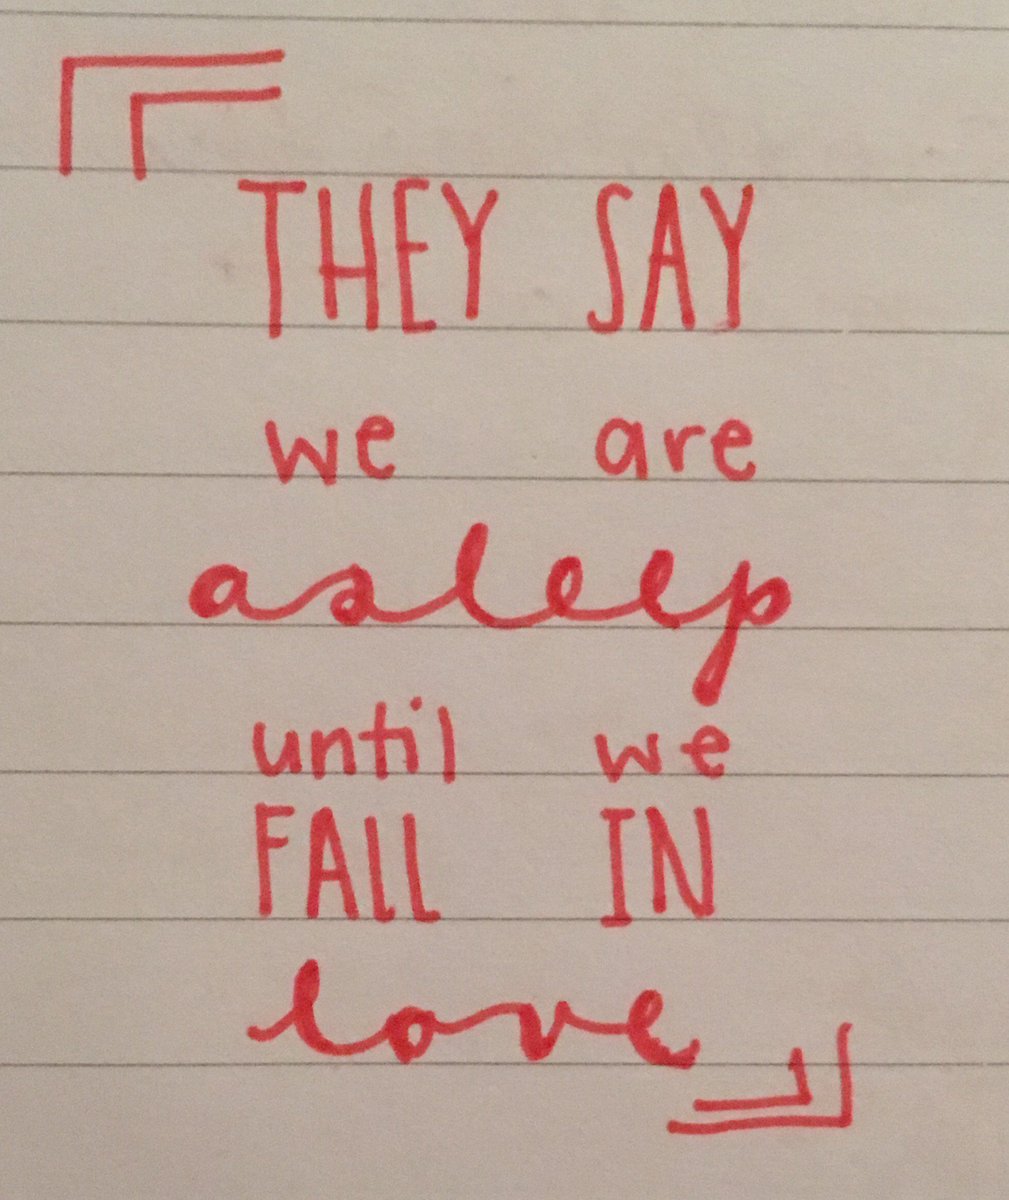 THEY SAY
we are
asleep
until we
FALL IN
love